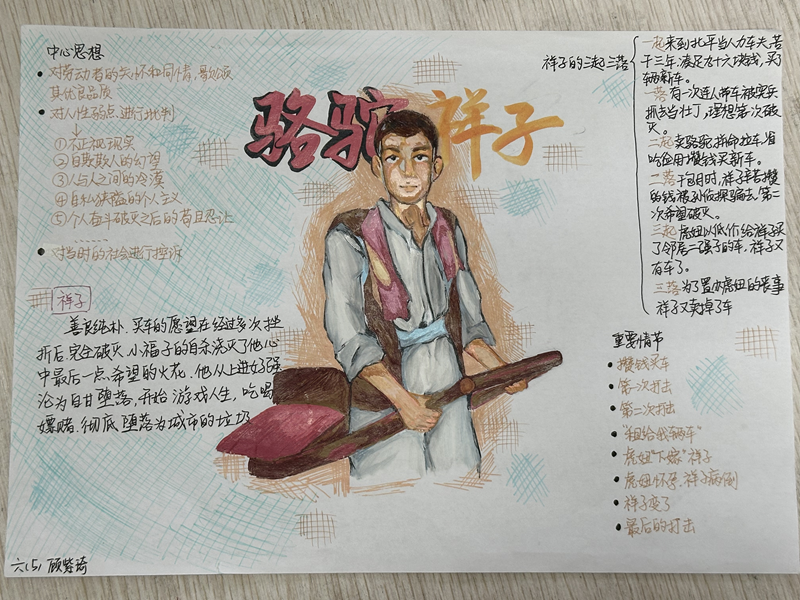 骆驼祥子
中心思想
对劳动者的关怀和同情，歌颂
其优良品质
对人性弱点进行批判
①不正视现实
②自欺欺人的幻想
③人与人之间的冷漠
④自私狭隘的个人主义
⑤个人奋斗破灭之后的苟且忍让
……
对当时的社会进行控诉
祥子
善良纯朴，买车的愿望在经过多次挫
折后，完全破灭，小福子的自杀浇灭了他心
中最后一点希望的火花，他从上进好强
沦为自甘堕落，开始游戏人生，吃喝
嫖赌，彻底堕落为城市的垃圾
六（5）顾紫琦
祥子的三起三落
一起来到北平当人力车夫，苦
干三年，凑足九十六块钱，买了
辆新车。
一落有一次连人带车被宪兵
抓去当壮丁，理想第一次破
灭。
二起卖骆驼，拼命拉车，省
吃俭用攒钱买新车。
二落干包月时，祥子辛苦攒
的钱被孙侦探骗去，第二
次希望破灭。
三起虎妞以低价给祥子买
了邻居二强子的车，祥子又
有车了。
三落为了置办虎妞的丧事
祥子又卖掉了车
重要情节
攒钱买车
第一次打击
第二次打击
“租给我辆车”
虎妞“下嫁”祥子
虎妞怀孕，祥子病倒
祥子变了
最后的打击